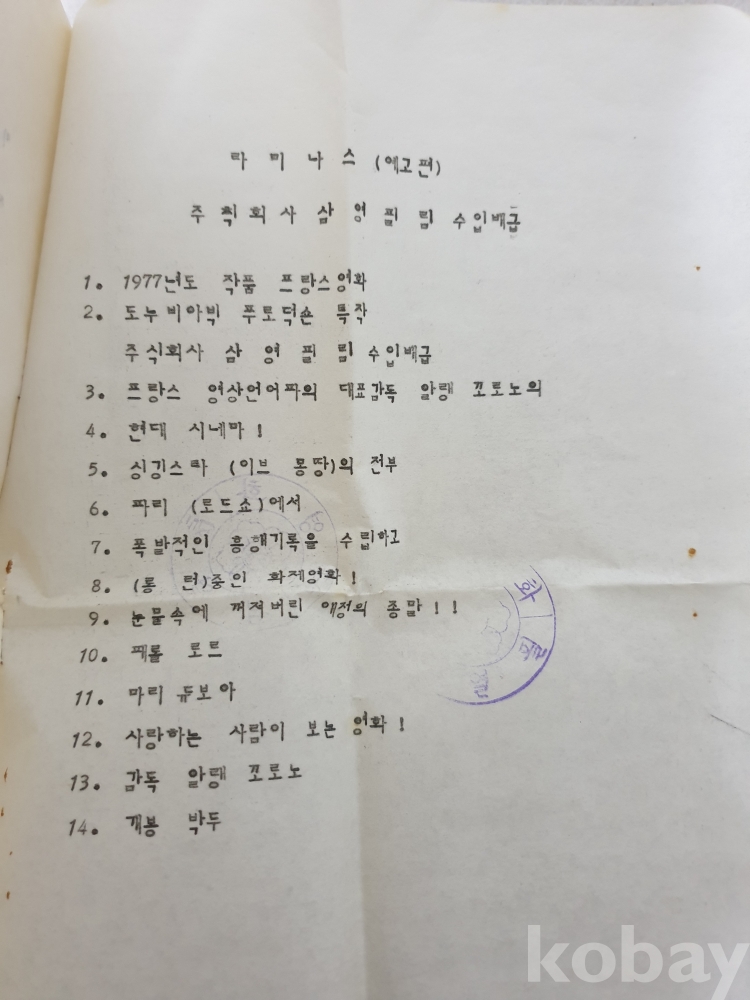 라 미 나 스 (예고편)
주 식 회 사 삼 영 필 림 수입배급
1. 1977년도 작품 프랑스영화
2. 도누비아빅 푸로덕숀 특작
주식회사 삼 영 필 림 수입배급
3. 프랑스 영상언어파의 대표감독 알랭 꼬로노의
4. 현대 시네마!
5. 싱깅스타 (이브 몽땅)의 전부
6. 파리 (로드쇼)에서
7. 폭발적인 흥행기록을 수립하고
8. (롱 런)중인 화제영화!
9. 눈물속에 꺼져버린 애정의 종말!!
10. 패롤 로르
11. 마리 듀보아
12. 사랑하는 사람이 보는 영화!
13. 감독 알랭 꼬로노
14. 개봉 박두
화
kobay